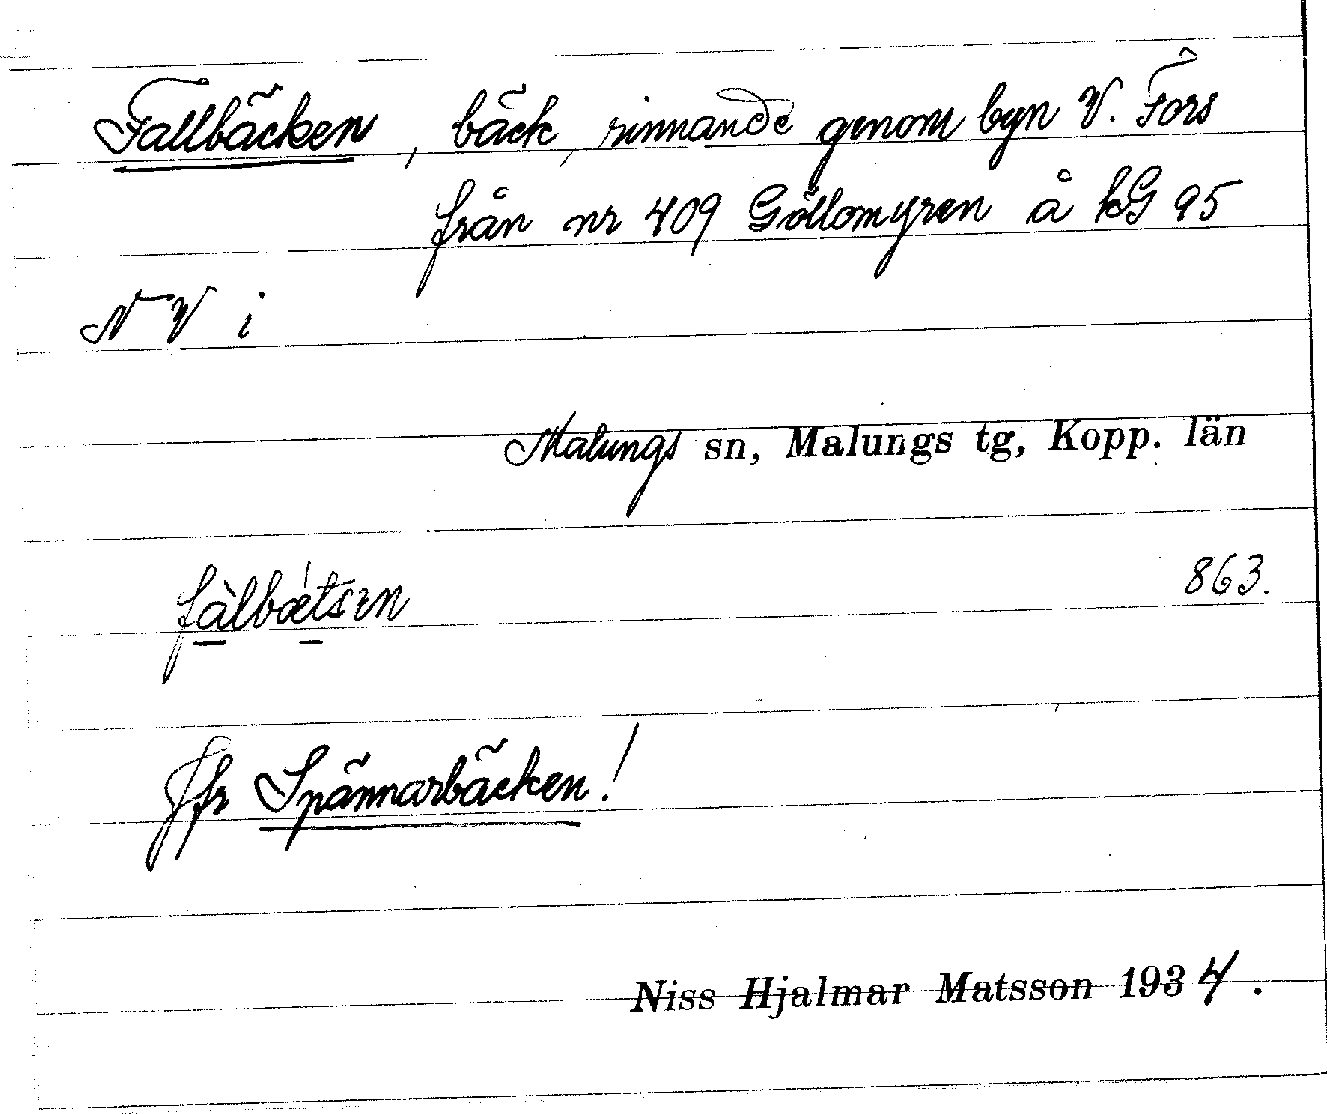 Fallbäcken, bäck, rinnande genom byn V. Fors
från nr 409 Göllomyren å kG 95
N V i
Malungs sn, Malungs tg, Kopp. län
fàlbǽtsɛn
863.
Jfr Spännarbäcken!
Niss Hjalmar Matsson 1934.